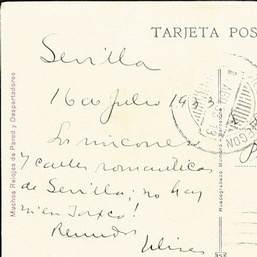 TARJETA POS
Sevilla
16 de Julio 1953
Los rincones
y calles romanticas
de Sevilla: no hay
ni en Taxco!
Recuerdos
Ulises
Muchos Relojes de Pared y Despertadores
Huecograbado Mumbrú - Barcelona